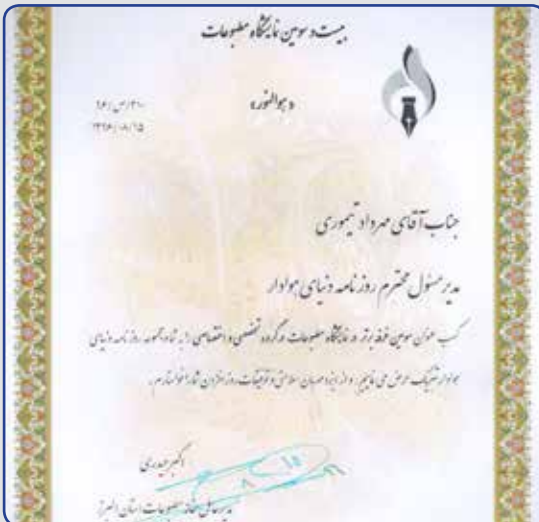 بیست و سومین نمایشگاه مطبوعات
«هوالنور»
۹۶/س/۳۱۰
۱۳۹۶/۰۸/۱۵
جناب آقای مهرداد تیموری
مدیر مسئول محترم روزنامه دنیای هوادار
کسب عنوان سومین غرفه برتر در نمایشگاه مطبوعات در گروه تخصصی و اختصاصی را به شما و مجموعه روزنامه دنیای
هوادار تبریک عرض می نماییم. و از ایزد مهربان سلامتی و توفیقات روز افزون شما را خواستارم.
اکبر حیدری
مدیرعامل خانه مطبوعات استان البرز